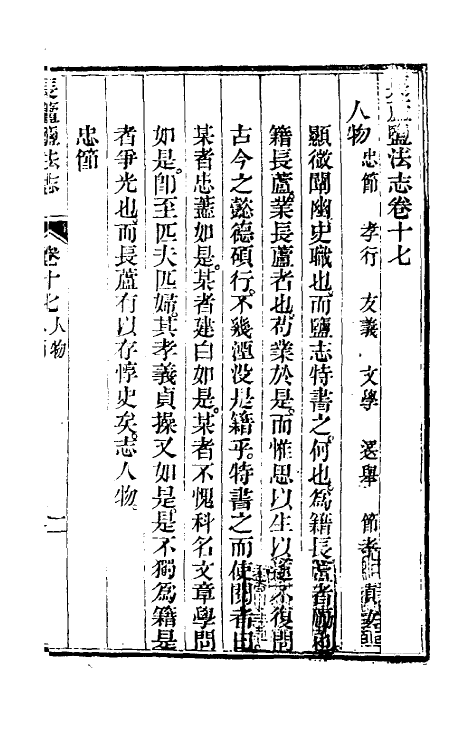 長蘆鹽法志卷十七
人物 忠節 孝行 友義 文學 選舉 節孝
顯微闡幽史職也而鹽志特書之何也為籍長蘆者
籍長蘆業長蘆者也茍業於是而惟思以生以遂不復問
古今之懿德碩行不幾湮没是籍乎特書之而使閱者曰
某者忠藎如是某者建白如是某者不愧科名文章學問
如是卽至匹夫匹婦其孝義貞操又如是是不獨為籍是
者爭光也而長蘆有以存惇史矣志人物
忠節
長蘆鹽法志 卷十七 人物 一